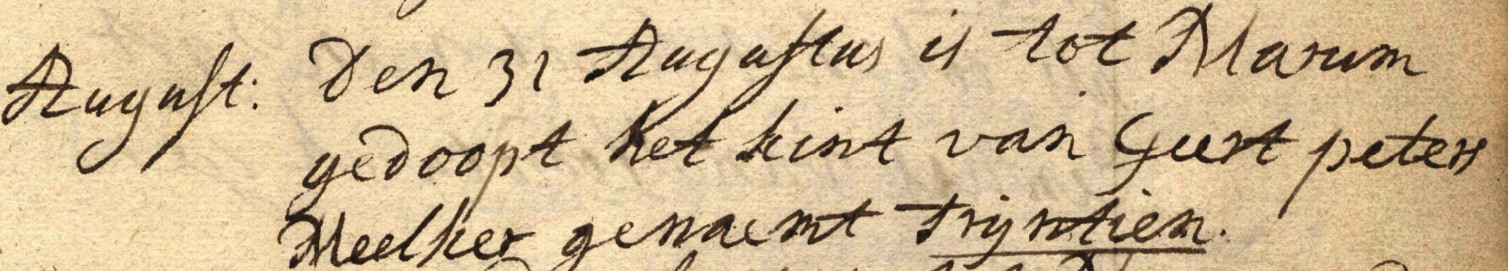 August: Den 31 Augustus is tot Marum
gedoopt het kint van Geert peters
Meelker genaemt Trijntien.